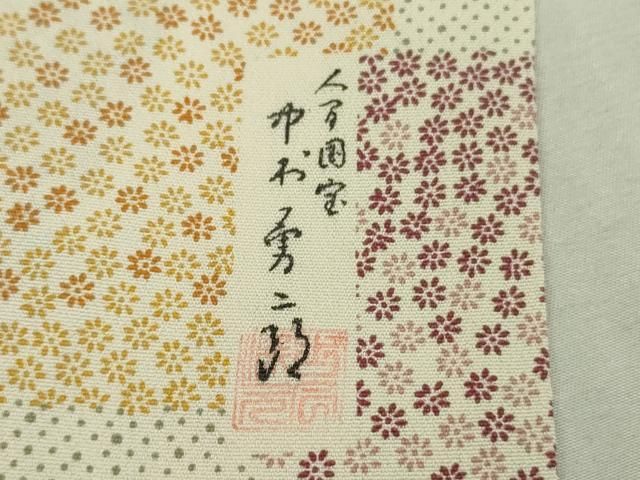 人間國宝
中村勇二郎